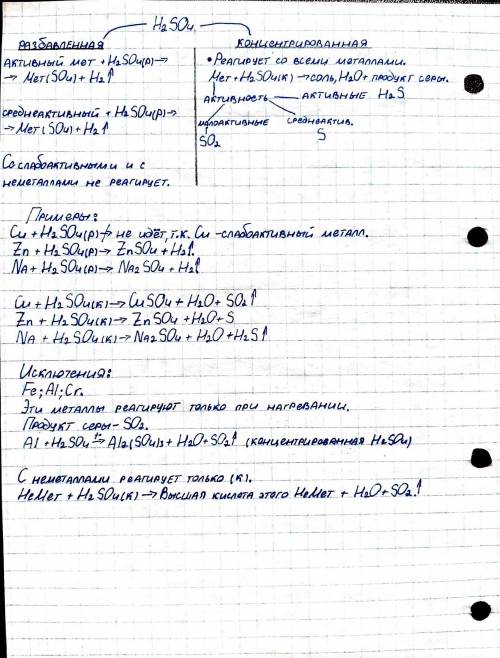 H2SO4
РАЗБАВЛЕННАЯ
Активный мет + H2SO4(р) →
→ Мет(SO4) + H2↑
среднеактивный + H2SO4(р) →
→ Мет(SO4) + H2↑
Со слабоактивными и с
неметаллами не реагирует.
КОНЦЕНТРИРОВАННАЯ
• Реагирует со всеми металлами.
Мет + H2SO4(к) → соль, H2O + продукт серы.
активность — активные H2S
малоактивные среднеактив.
SO2 S
Примеры:
Cu + H2SO4(р) ↛ не идёт, т.к. Cu - слабоактивный металл.
Zn + H2SO4(р) → ZnSO4 + H2↑.
Na + H2SO4(р) → Na2SO4 + H2↑
Cu + H2SO4(к) → CuSO4 + H2O + SO2↑
Zn + H2SO4(к) → ZnSO4 + H2O + S
Na + H2SO4(к) → Na2SO4 + H2O + H2S↑
Исключения:
Fe; Al; Cr.
Эти металлы реагируют только при нагревании.
Продукт серы - SO2.
Al + H2SO4 t→ Al2(SO4)3 + H2O + SO2↑ (концентрированная H2SO4)
С неметаллами реагирует только (к).
НеМет + H2SO4(к) → Высшая кислота этого НеМет + H2O + SO2.↑